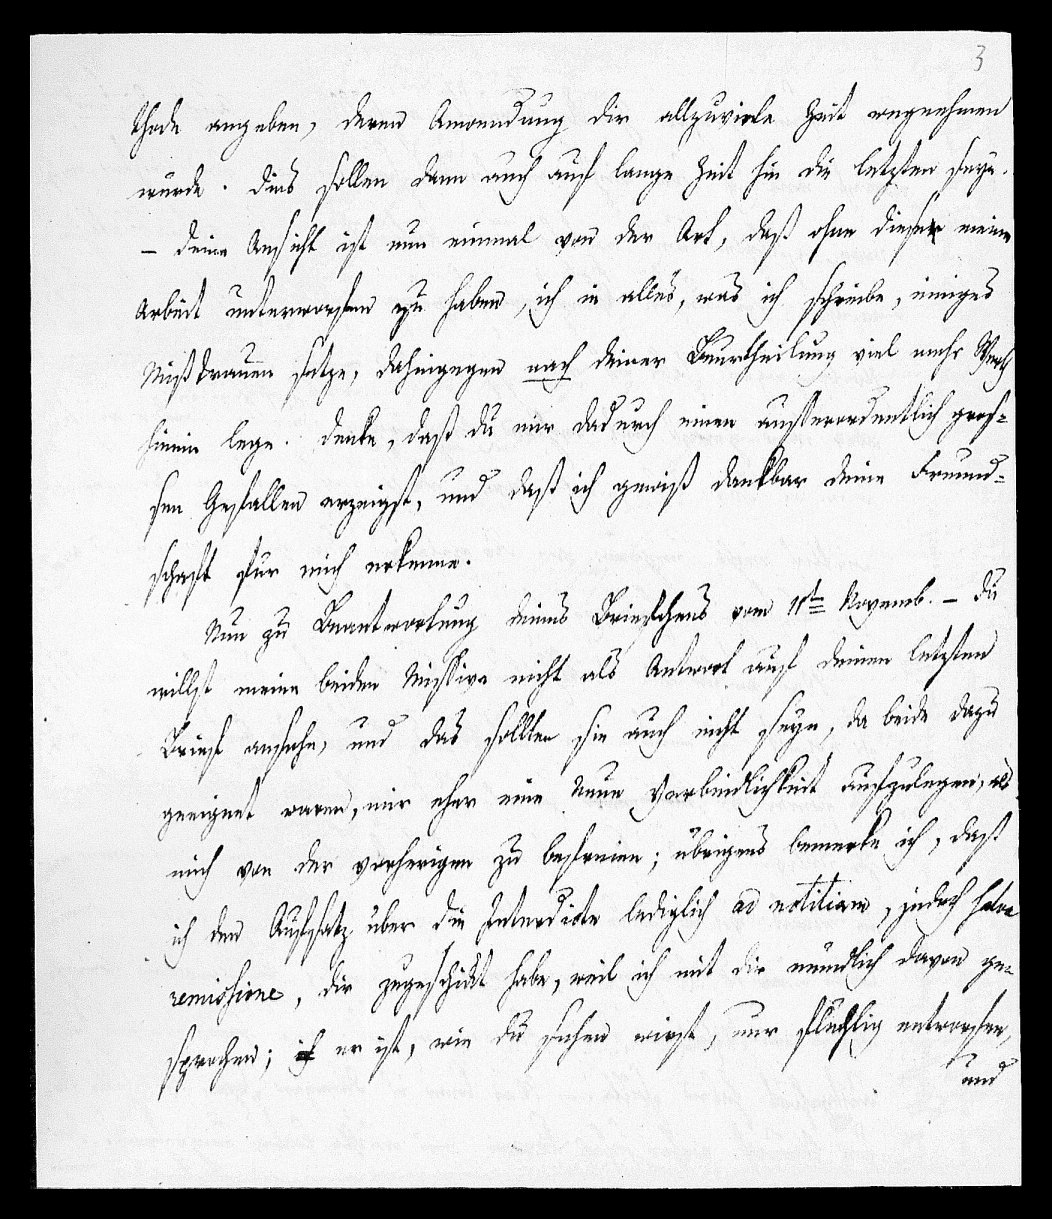 3
thode angeben, deren Anwendung dir allzuviele Zeit wegnehmen
wurde. Dies sollen dann auch auf lange Zeit hin die letzten seyn.
– Deine Ansicht ist nun einmal von der Art, daß ohne dieser meine
Arbeit unterworfen zu haben, ich in alles, was ich schreibe, einiges
Mißtrauen setze, dahingegen nach deiner Beurtheilung viel mehr Werth
hinein lege. Denke, daß du mir dadurch einen ausserordentlich gros-
sen Gefallen erzeigst, und daß ich gewiß dankbar deine Freund-
schaft fur mich erkenne.
Nun zu Beantwortung deines Briefchens vom 11t Novemb. – Du
willst meine beiden Missive nicht als Antwort auf deinen letzten
Brief ansehn, und das sollten sie auch nicht seyn, da beide dazu
geeignet waren, mir eher eine neue Verbindlichkeit aufzulegen, als
mich von der vorherigen zu befreien; übrigens bemerke ich, daß
ich den Aufsatz über die Interdicte lediglich ad notitiam, jedoch salva
remissione, dir zugeschickt habe, weil ich mit dir mündlich davon ge-
sprochen; er ist, wie du sehen wirst, nur fluchtig entworfen,
und